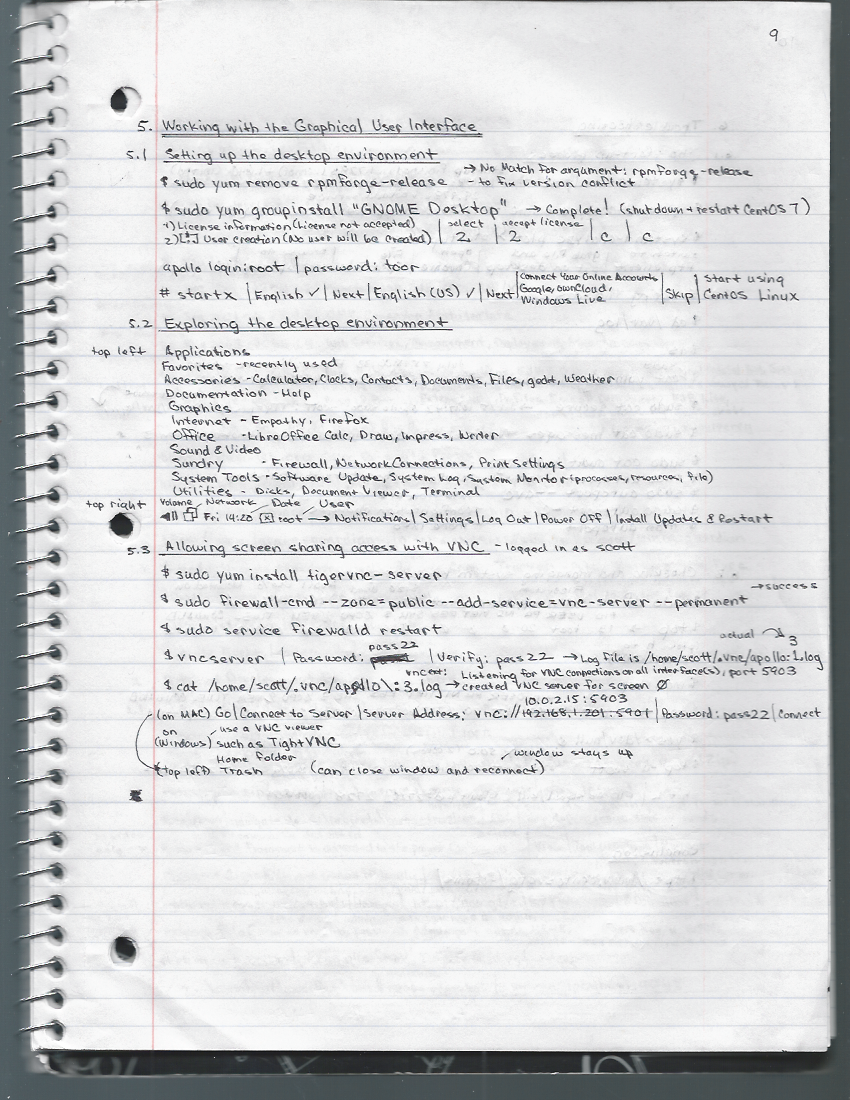 9
5. Working with the Graphical User Interface
5.1 Setting up the desktop environment
→ No Match for argument: rpmforge-release
$ sudo yum remove rpmforge-release - to fix version conflict
$ sudo yum groupinstall "GNOME Desktop" → Complete! (shutdown + restart CentOS 7)
1) License information (License not accepted) | select | accept license | |
2) [ ] User creation (No user will be created) | 2 | 2 | c | c
apollo login: root | password: toor
# startx | English ✓ | Next | English (US) ✓ | Next | Connect Your Online Accounts Google, ownCloud, Windows Live | Skip | Start using CentOS Linux
5.2 Exploring the desktop environment
top left Applications
Favorites - recently used
Accessories - Calculator, Clocks, Contacts, Documents, Files, gedit, Weather
Documentation - Help
Graphics
Internet - Empathy, Firefox
Office - LibreOffice Calc, Draw, Impress, Writer
Sound & Video
Sundry - Firewall, Network Connections, Print Settings
System Tools - Software Update, System Log, System Monitor (processes, resources, file)
Utilities - Disks, Document Viewer, Terminal
top right Volume Network Date User
Fri 14:20 root → Notifications | Settings | Log Out | Power Off | Install Updates & Restart
5.3 Allowing screen sharing access with VNC - logged in as scott
$ sudo yum install tigervnc-server
→ success
$ sudo firewall-cmd --zone=public --add-service=vnc-server --permanent
$ sudo service firewalld restart
actual 3
pass22
$ vncserver | Password: | Verify: pass22 → Log file is /home/scott/.vnc/apollo:1.log
vncext: Listening for VNC connections on all interface(s), port 5903
$ cat /home/scott/.vnc/apollo\:3.log → created VNC server for screen 0
10.0.2.15:5903
(on MAC) Go | Connect to Server | Server Address: vnc://192.168.1.201:5901 | Password: pass22 | Connect
on use a VNC viewer
(Windows) such as TightVNC
Home folder window stays up
(top left) Trash (can close window and reconnect)